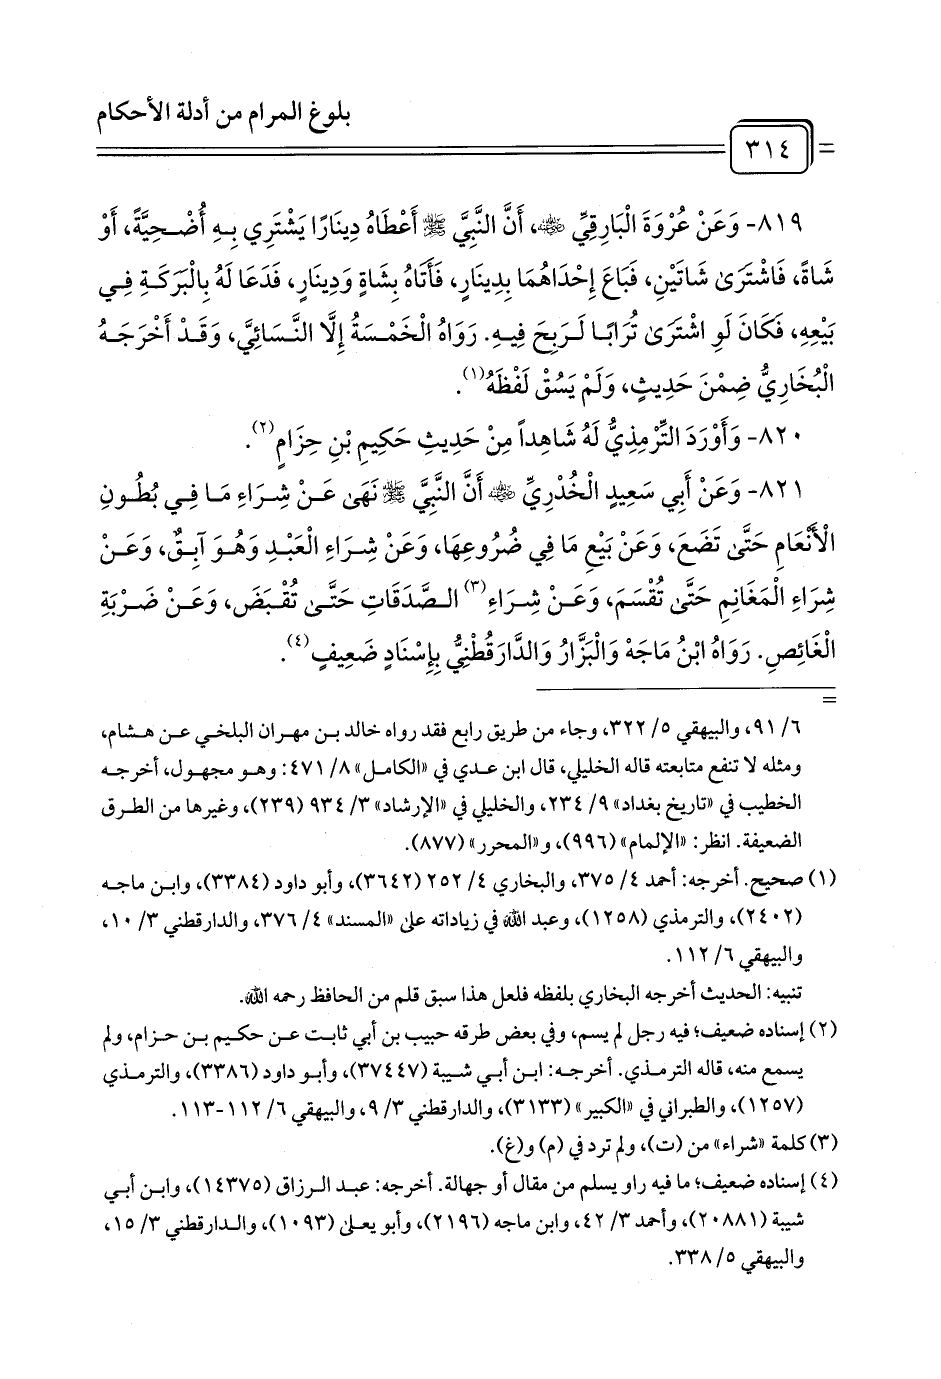 بلوغ المرام من أدلة الأحكام
٣١٤
٨١٩- وَعَنْ عُرْوَةَ الْبَارِقِيِّ ﵁، أَنَّ النَّبِيَّ ﷺ أَعْطَاهُ دِينَارًا يَشْتَرِي بِهِ أُضْحِيَّةً، أَوْ
شَاةً، فَاشْتَرَىٰ شَاتَيْنِ، فَبَاعَ إِحْدَاهُمَا بِدِينَارٍ، فَأَتَاهُ بِشَاةٍ وَدِينَارٍ، فَدَعَا لَهُ بِالْبَرَكَةِ فِي
بَيْعِهِ، فَكَانَ لَوِ اشْتَرَىٰ تُرَابًا لَرَبِحَ فِيهِ. رَوَاهُ الْخَمْسَةُ إِلَّا النَّسَائِيَّ، وَقَدْ أَخْرَجَهُ
الْبُخَارِيُّ ضِمْنَ حَدِيثٍ، وَلَمْ يَسُقْ لَفْظَهُ(١).
٨٢٠- وَأَوْرَدَ التِّرْمِذِيُّ لَهُ شَاهِداً مِنْ حَدِيثِ حَكِيمِ بْنِ حِزَامٍ(٢).
٨٢١- وَعَنْ أَبِي سَعِيدٍ الْخُدْرِيِّ ﵁ أَنَّ النَّبِيَّ ﷺ نَهَىٰ عَنْ شِرَاءِ مَا فِي بُطُونِ
الْأَنْعَامِ حَتَّىٰ تَضَعَ، وَعَنْ بَيْعِ مَا فِي ضُرُوعِهَا، وَعَنْ شِرَاءِ الْعَبْدِ وَهُوَ آبِقٌ، وَعَنْ
شِرَاءِ الْمَغَانِمِ حَتَّىٰ تُقْسَمَ، وَعَنْ شِرَاءِ(٣) الصَّدَقَاتِ حَتَّىٰ تُقْبَضَ، وَعَنْ ضَرْبَةِ
الْغَائِصِ. رَوَاهُ ابْنُ مَاجَهْ وَالْبَزَّارُ وَالدَّارَقُطْنِيُّ بِإِسْنَادٍ ضَعِيفٍ(٤).
=
٦/ ٩١، والبيهقي ٥/ ٣٢٢، وجاء من طريق رابع فقد رواه خالد بن مهران البلخي عن هشام،
ومثله لا تنفع متابعته قاله الخليلي، قال ابن عدي في «الكامل» ٨/ ٤٧١: وهو مجهول، أخرجه
الخطيب في «تاريخ بغداد» ٩/ ٢٣٤، والخليلي في «الإرشاد» ٣/ ٩٣٤ (٢٣٩)، وغيرها من الطرق
الضعيفة. انظر: «الإلمام» (٩٩٦)، و«المحرر» (٨٧٧).
(١) صحيح. أخرجه: أحمد ٤/ ٣٧٥، والبخاري ٤/ ٢٥٢ (٣٦٤٢)، وأبو داود (٣٣٨٤)، وابن ماجه
(٢٤٠٢)، والترمذي (١٢٥٨)، وعبد الله في زياداته على «المسند» ٤/ ٣٧٦، والدارقطني ٣/ ١٠،
والبيهقي ٦/ ١١٢.
تنبيه: الحديث أخرجه البخاري بلفظه فلعل هذا سبق قلم من الحافظ رحمه الله.
(٢) إسناده ضعيف؛ فيه رجل لم يسم، وفي بعض طرقه حبيب بن أبي ثابت عن حكيم بن حزام، ولم
يسمع منه، قاله الترمذي. أخرجه: ابن أبي شيبة (٣٧٤٤٧)، وأبو داود (٣٣٨٦)، والترمذي
(١٢٥٧)، والطبراني في «الكبير» (٣١٣٣)، والدارقطني ٣/ ٩، والبيهقي ٦/ ١١٢-١١٣.
(٣) كلمة «شراء» من (ت)، ولم ترد في (م) و(غ).
(٤) إسناده ضعيف؛ ما فيه راو يسلم من مقال أو جهالة. أخرجه: عبد الرزاق (١٤٣٧٥)، وابن أبي
شيبة (٢٠٨٨١)، وأحمد ٣/ ٤٢، وابن ماجه (٢١٩٦)، وأبو يعلى (١٠٩٣)، والدارقطني ٣/ ١٥،
والبيهقي ٥/ ٣٣٨.